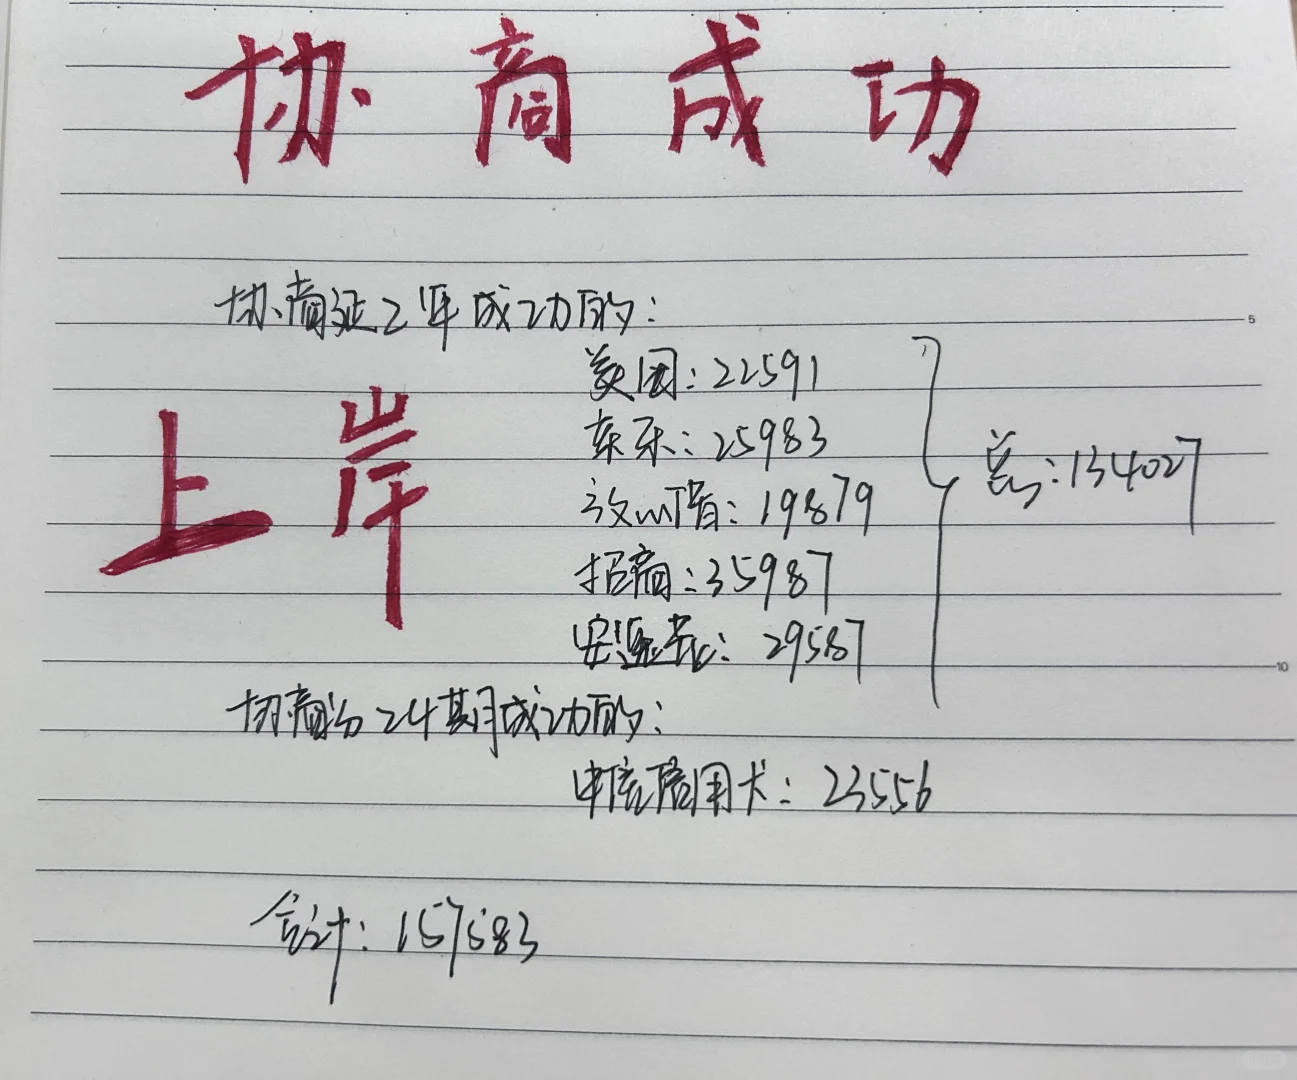 协商成功
协商延2年成功的：
美团：22591
京东：25983
放心借：19879
招商：35987
安逸花：29587
总：134027
上岸
协商分24期成功的：
中信信用卡：23556
合计：157583
5
10